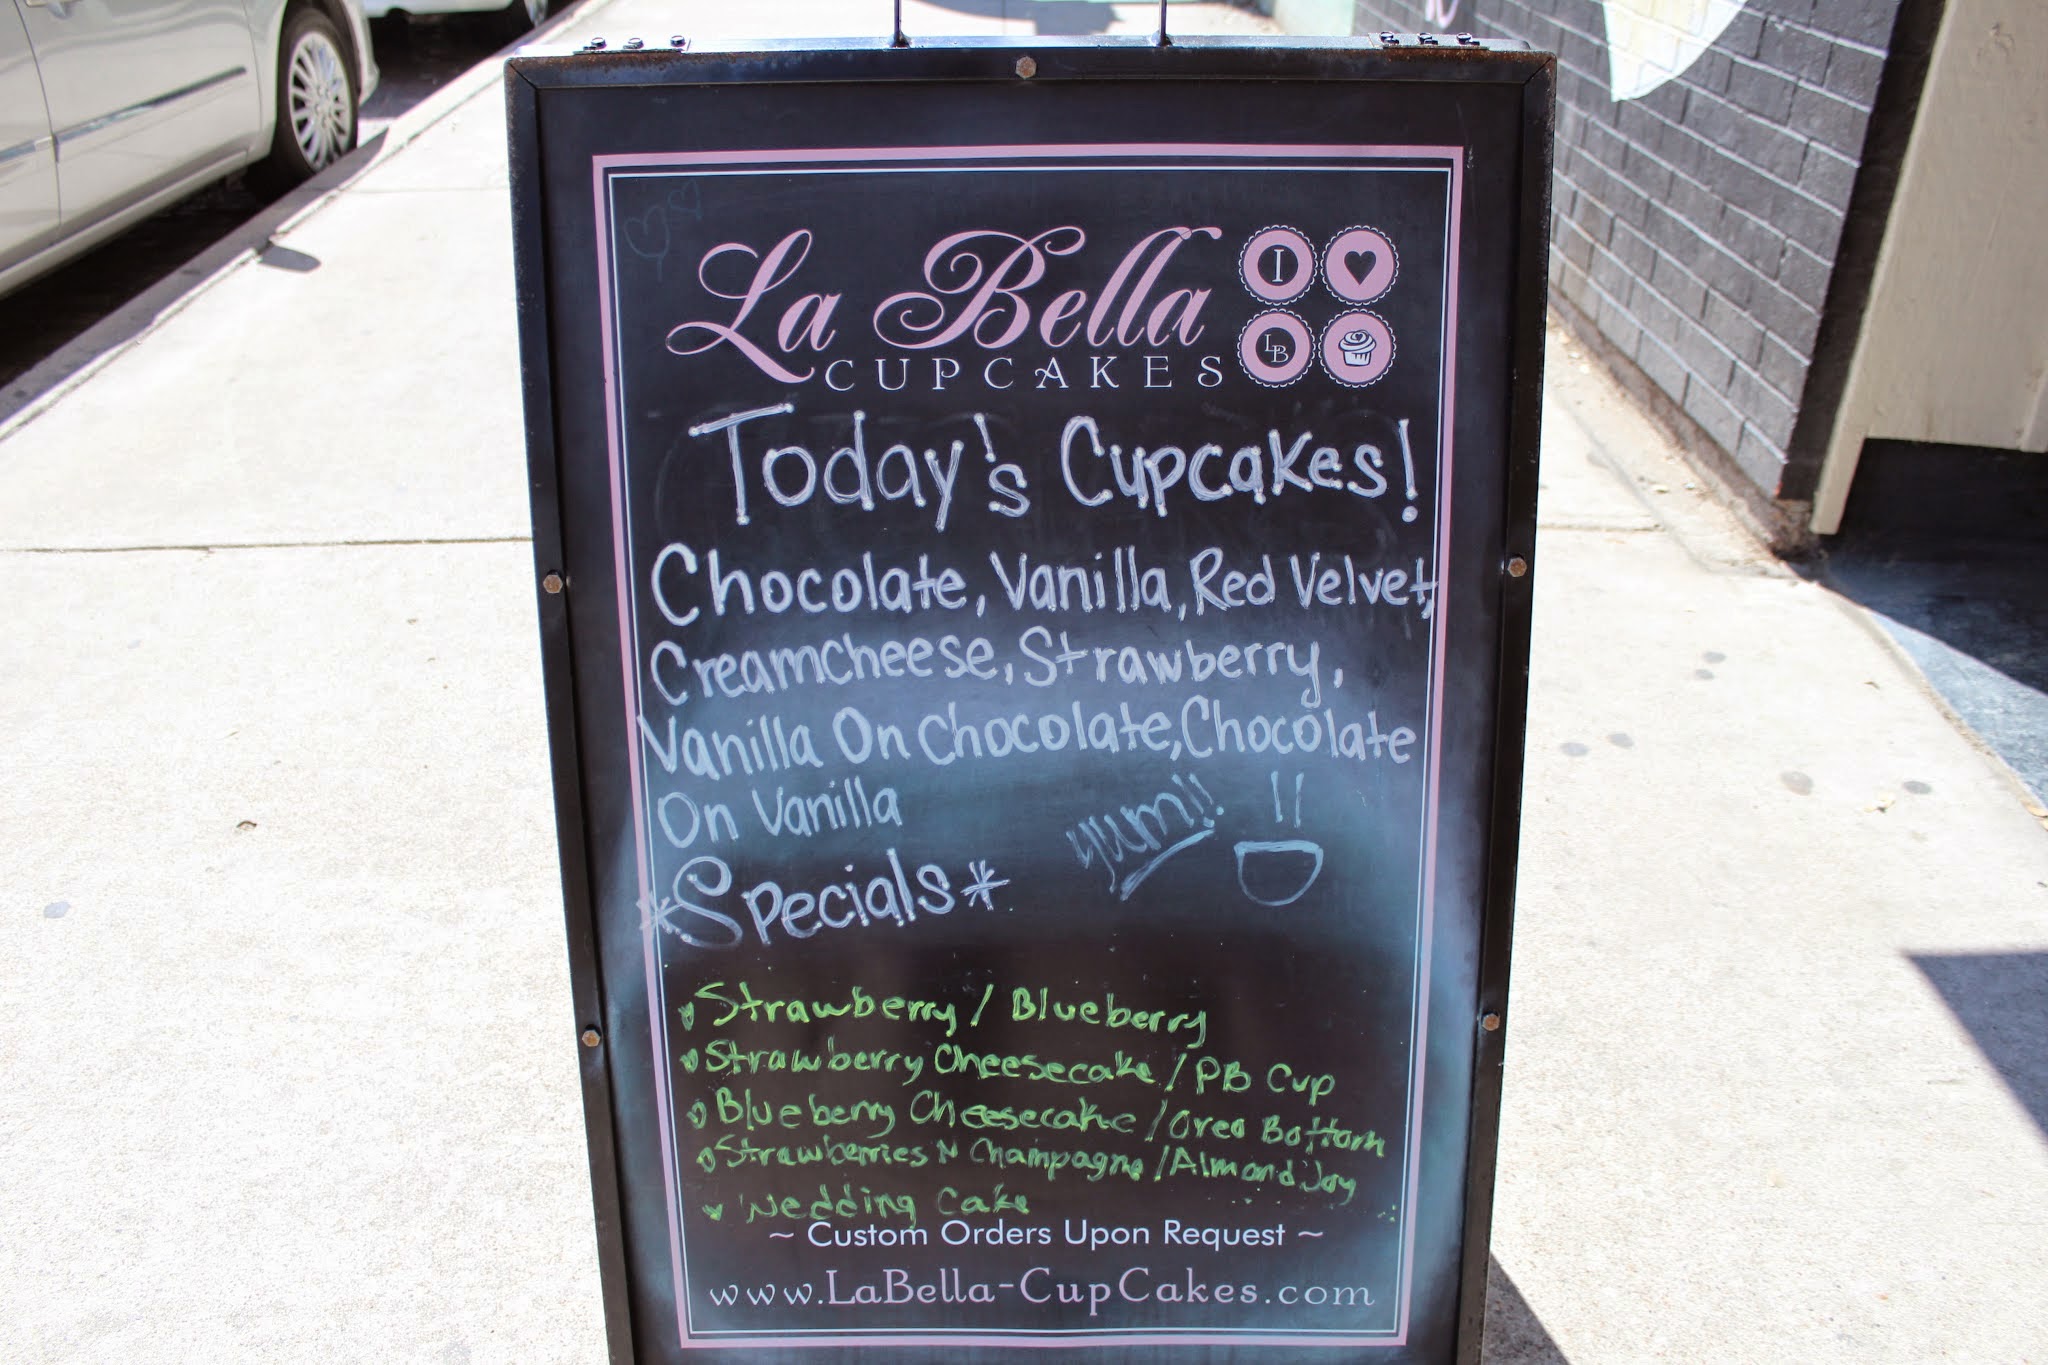 La Bella
CUPCAKES
I
LB
Today's Cupcakes!
Chocolate, Vanilla, Red Velvet,
Creamcheese, Strawberry,
Vanilla On Chocolate, Chocolate
On Vanilla
yum!!
*Specials*
Strawberry / Blueberry
Strawberry Cheesecake / PB Cup
Blueberry Cheesecake / Oreo Bottom
Strawberries N Champagne / Almond Joy
Wedding Cake
~ Custom Orders Upon Request ~
www.LaBella-CupCakes.com